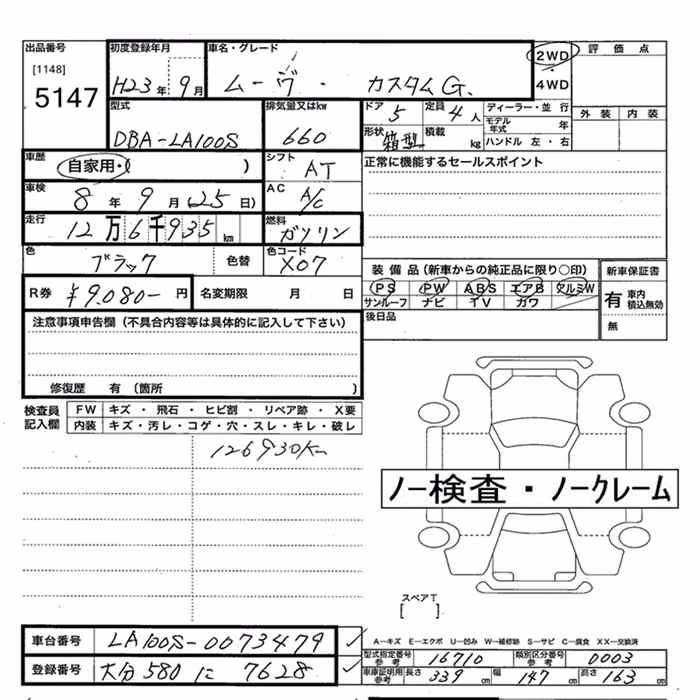 出品番号
[1148]
5147
初度登録年月
H23年 9月
車名・グレード
ムーヴ・ カスタムG.
2WD
4WD
評価点
外装 内装
型式
DBA-LA100S
排気量又はkw
660
ドア 5
定員 4人
形状 箱型
積載 kg
ディーラー・並行
モデル年式 年
ハンドル 左・右
車歴
自家用・( )
シフト
AT
正常に機能するセールスポイント
車検
8年 9月(25日)
AC
A/C
走行
12万6千935km
燃料
ガソリン
色
ブラック
色替
色コード
X07
装備品(新車からの純正品に限り○印)
PS PW ABS エアB アルミW
サンルーフ ナビ TV カワ
新車保証書
有 車内積込無効
無
R券 ¥9.080-円
名変期限 月 日
後日品
注意事項申告欄(不具合内容等は具体的に記入して下さい)
修復歴 有(箇所 )
検査員記入欄
FW キズ・飛石・ヒビ割・リペア跡・X要
内装 キズ・汚レ・コゲ・穴・スレ・キレ・破レ
126930K
ノー検査・ノークレーム
スペアT
[ ]
車台番号 LA100S-0073479
登録番号 大分 580 に 7628
A-キズ E-エクボ U-凹み W-補修跡 S-サビ C-腐食 XX-交換済
型式指定番号参考 16710
類別区分番号参考 0003
車庫証明用参考 長さ 339cm 幅 147cm 高さ 163cm